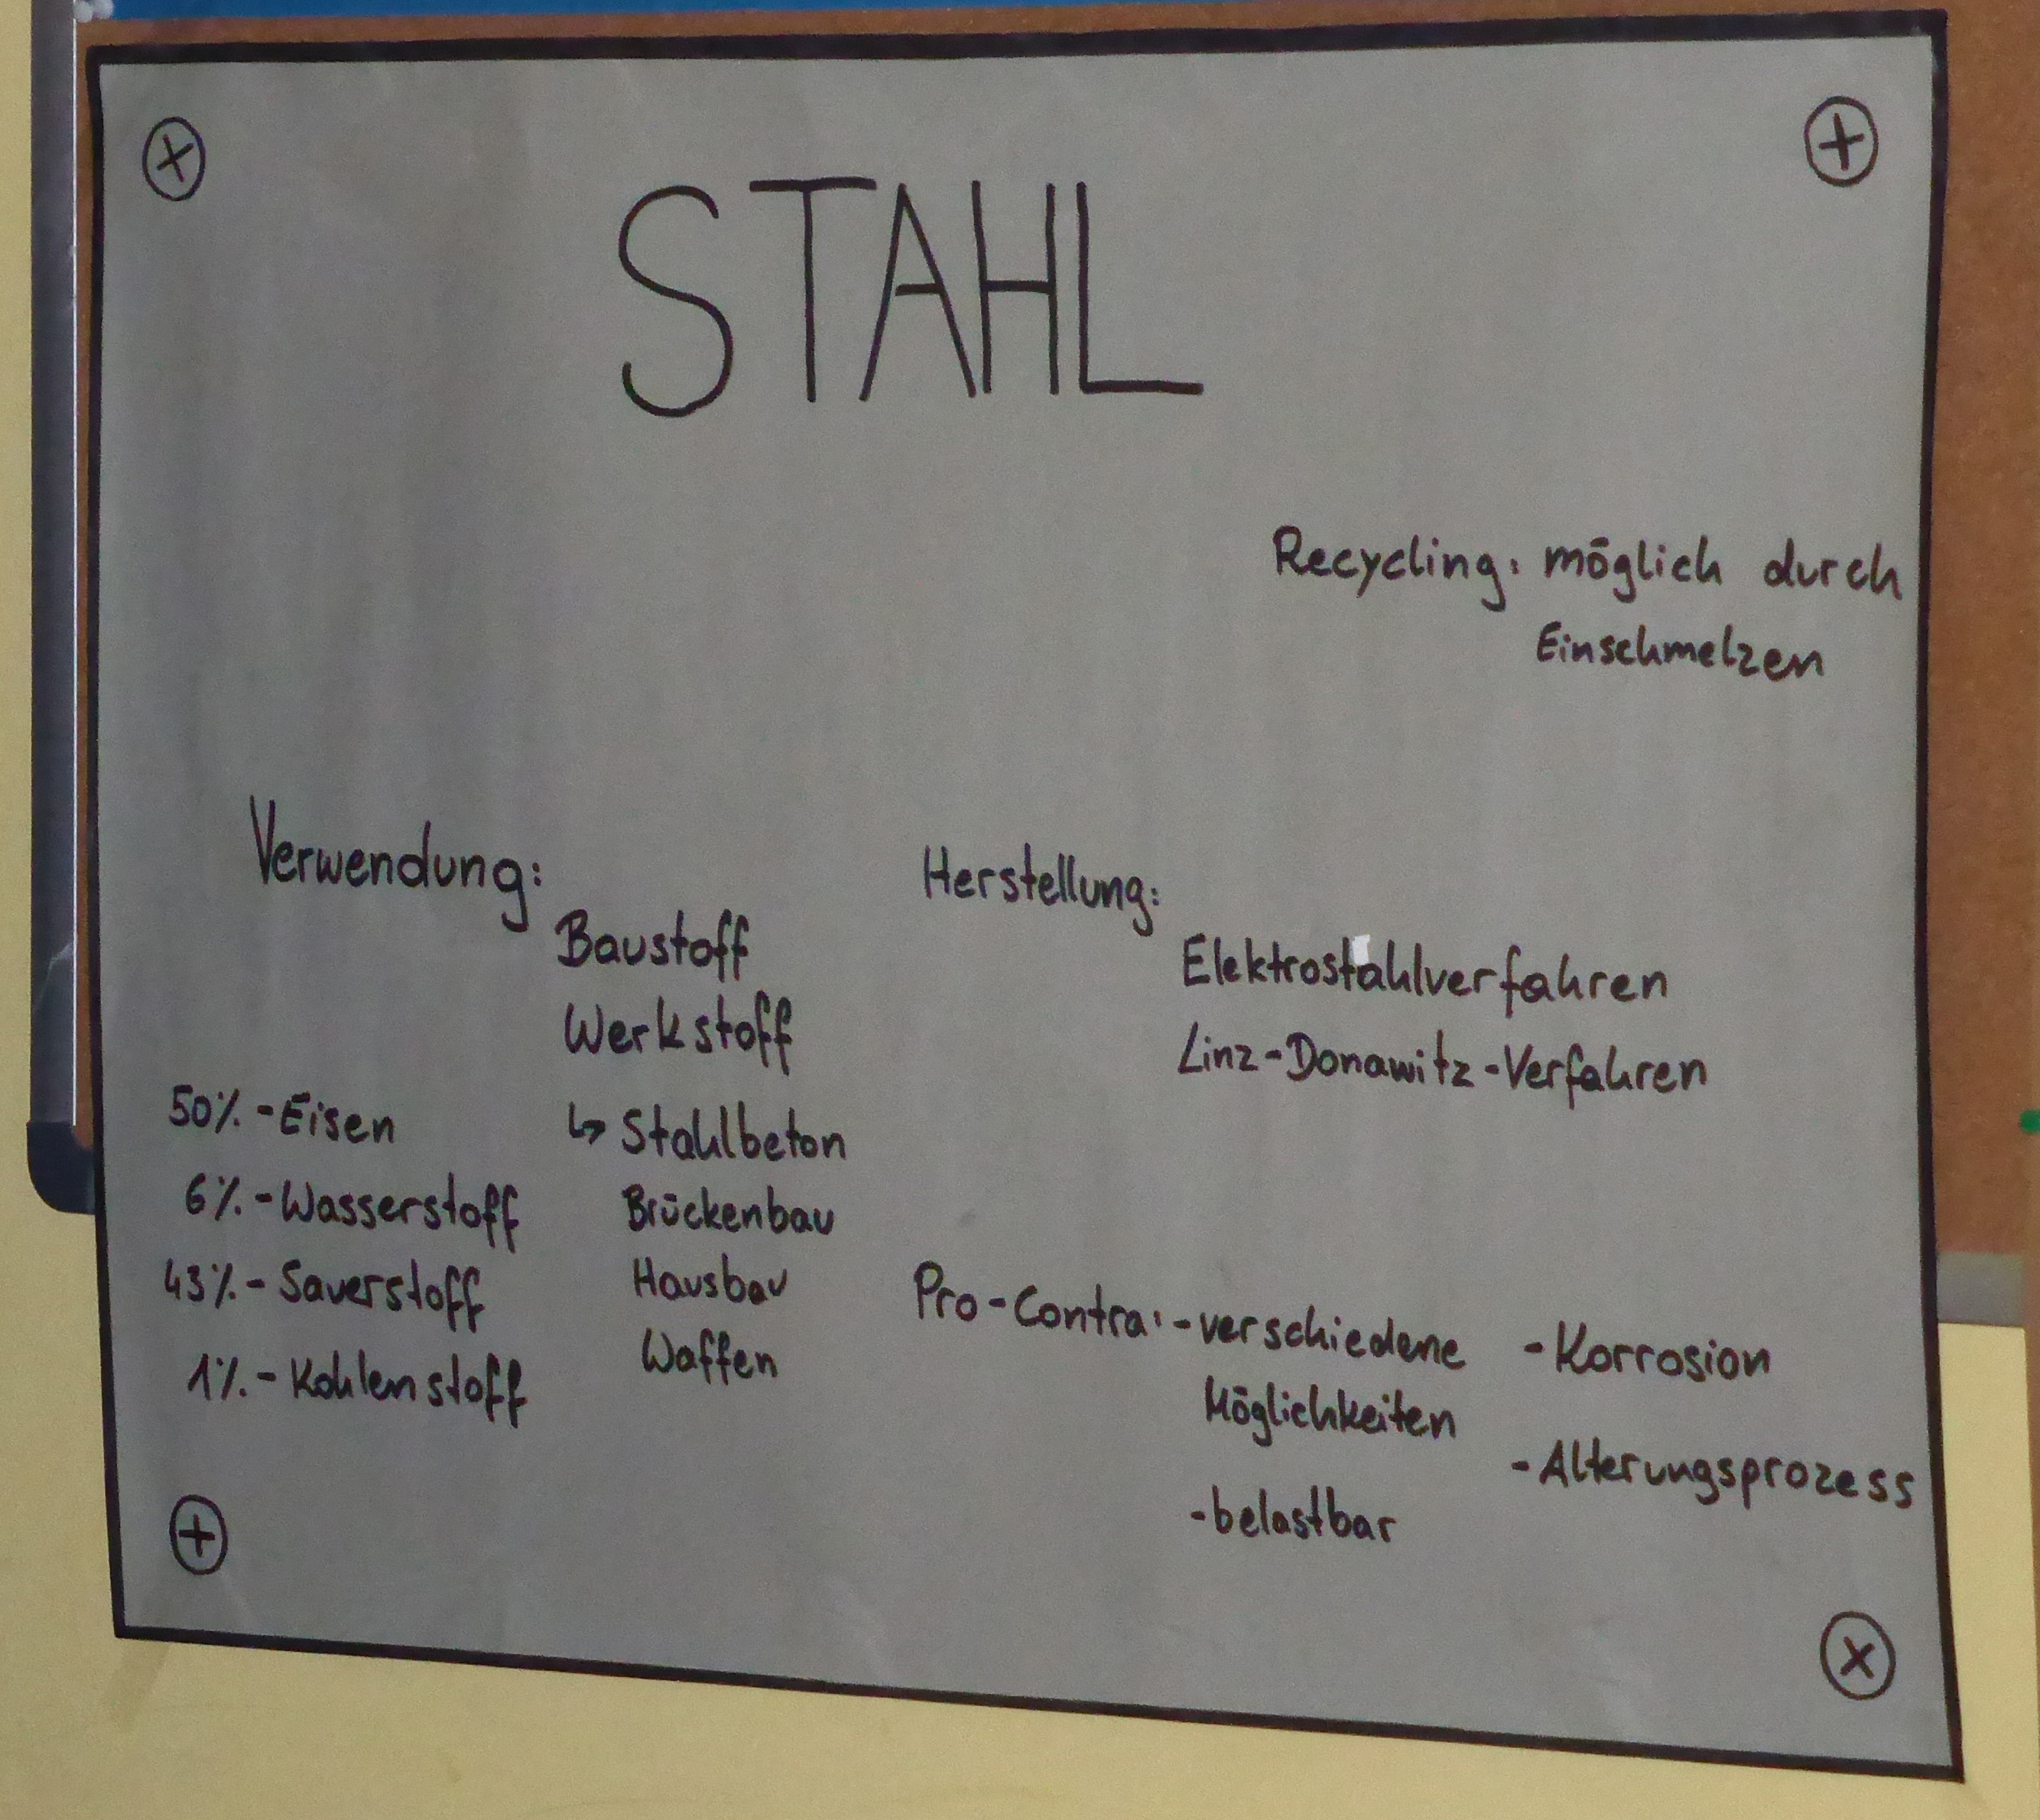 STAHL
Recycling: möglich durch
Einschmelzen
Verwendung:
Baustoff
Werkstoff
↳ Stahlbeton
Brückenbau
Hausbau
Waffen
50% - Eisen
6% - Wasserstoff
43% - Sauerstoff
1% - Kohlenstoff
Herstellung:
Elektrostahlverfahren
Linz-Donawitz-Verfahren
Pro-Contra: - verschiedene
Möglichkeiten
- belastbar
- Korrosion
- Alterungsprozess